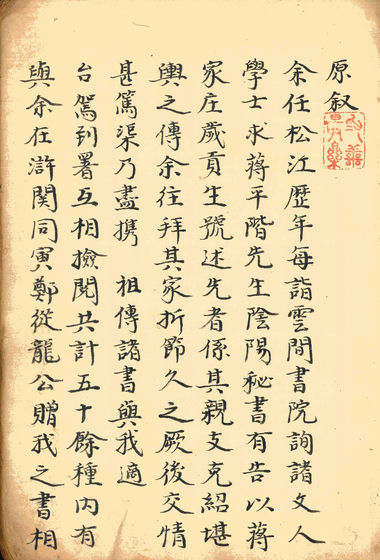 原叙
余任松江歷年每詣雲間書院詢諸文人
學士求蔣平階先生陰陽秘書有告以蔣
家庄歲貢生號述先者係其親支克紹堪
輿之傳余往拜其家折節久之厥後交情
甚篤渠乃盡携 祖傳諸書與我適
台駕到署互相撿閱共計五十餘種內有
與余在滸関同寅鄭從龍公贈我之書相